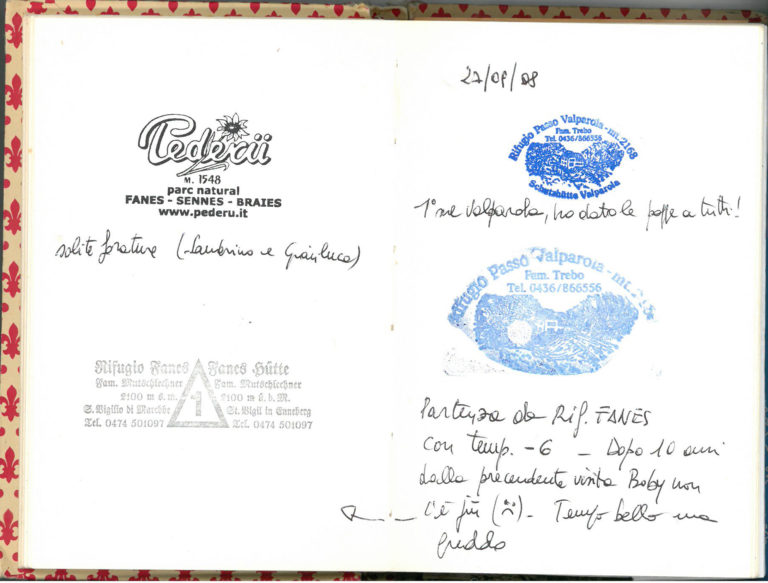 Pederü
M. 1548
parc natural
FANES - SENNES - BRAIES
www.pederu.it
solite forature (Sambrino e Gianluca)
Rifugio Fanes Fanes Hütte
Fam. Mutschlechner Fam. Mutschlechner
2100 m s.m. 2100 m ü.d.M.
S. Vigilio di Marebbe 1 St. Vigil in Enneberg
Tel. 0474 501097 Tel. 0474 501097
27/08/08
Rifugio Passo Valparola - mt. 2168
Fam. Trebo
Tel. 0436/866556
Schutzhütte Valparola
1° me Valparola, ho dato le paffe a tutti!
Rifugio Passo Valparola - mt. 2168
Fam. Trebo
Tel. 0436/866556
Partenza da Rif. FANES
con temp. -6 - Dopo 10 anni
dalla precendente visita Boby non
c'è più (:() - Tempo bello ma
freddo